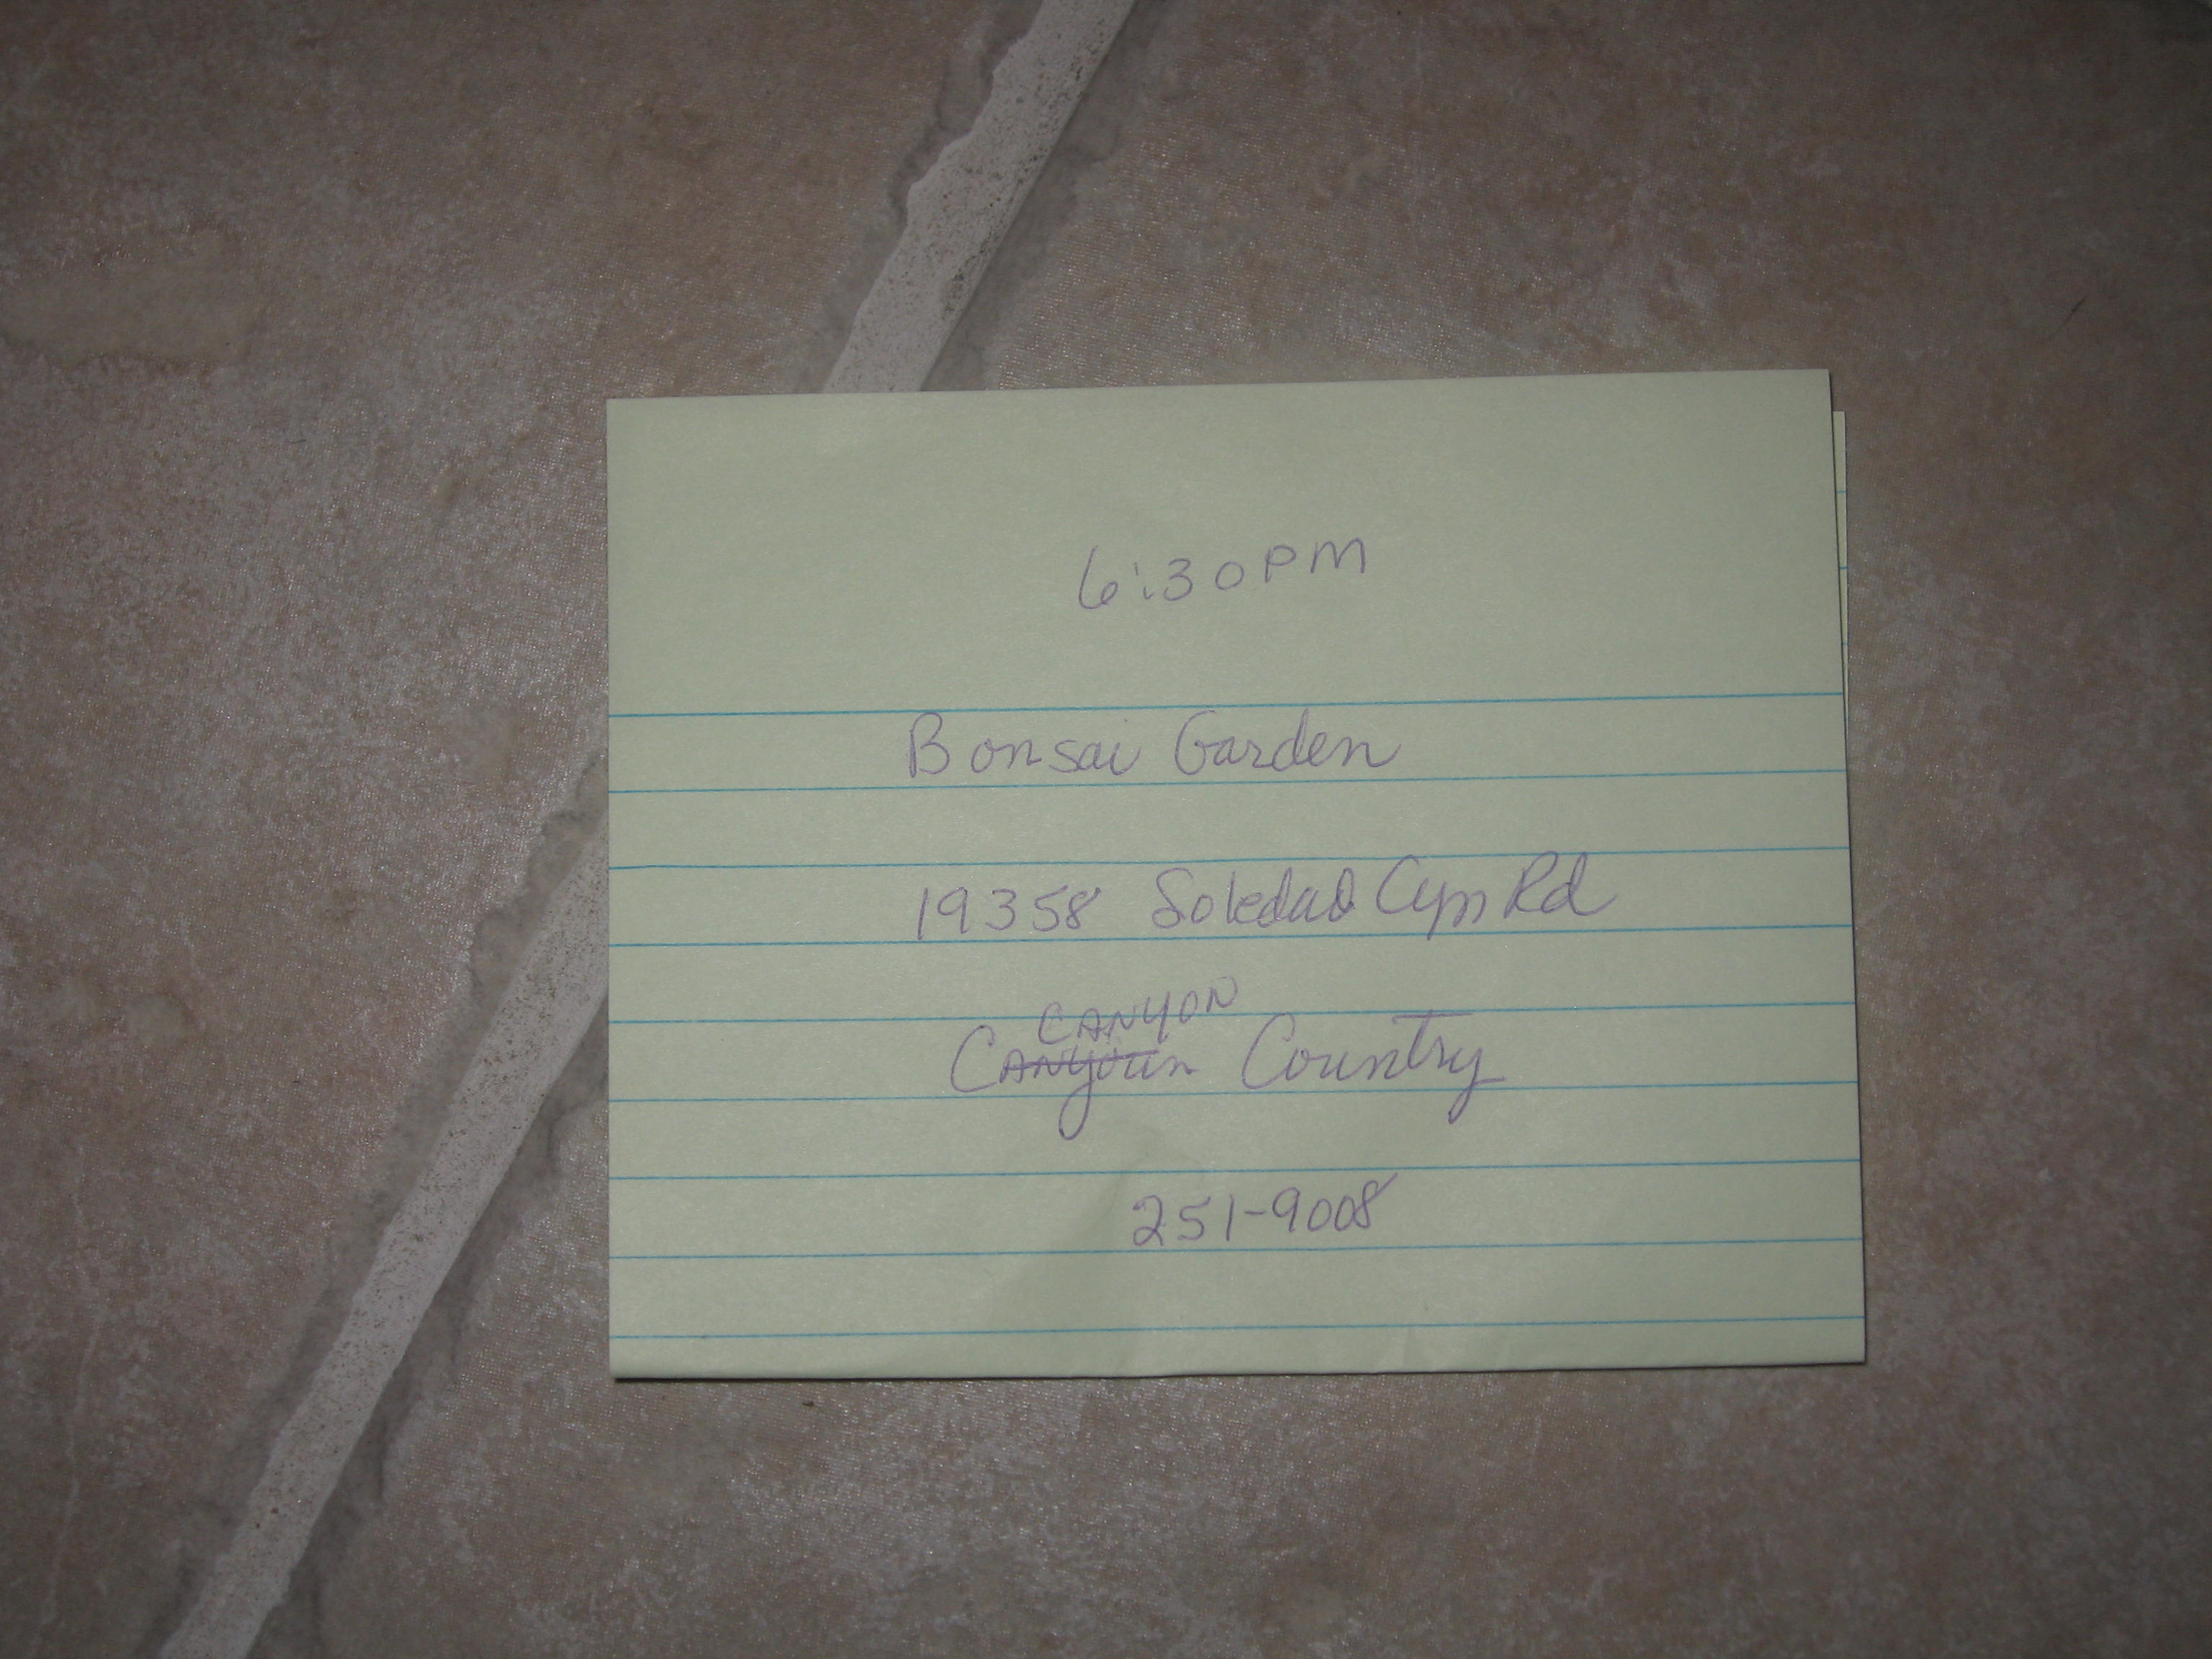 6:30PM
Bonsai Garden
19358 Soledad Cyn Rd
CANYON
Canyoun Country
251-9008